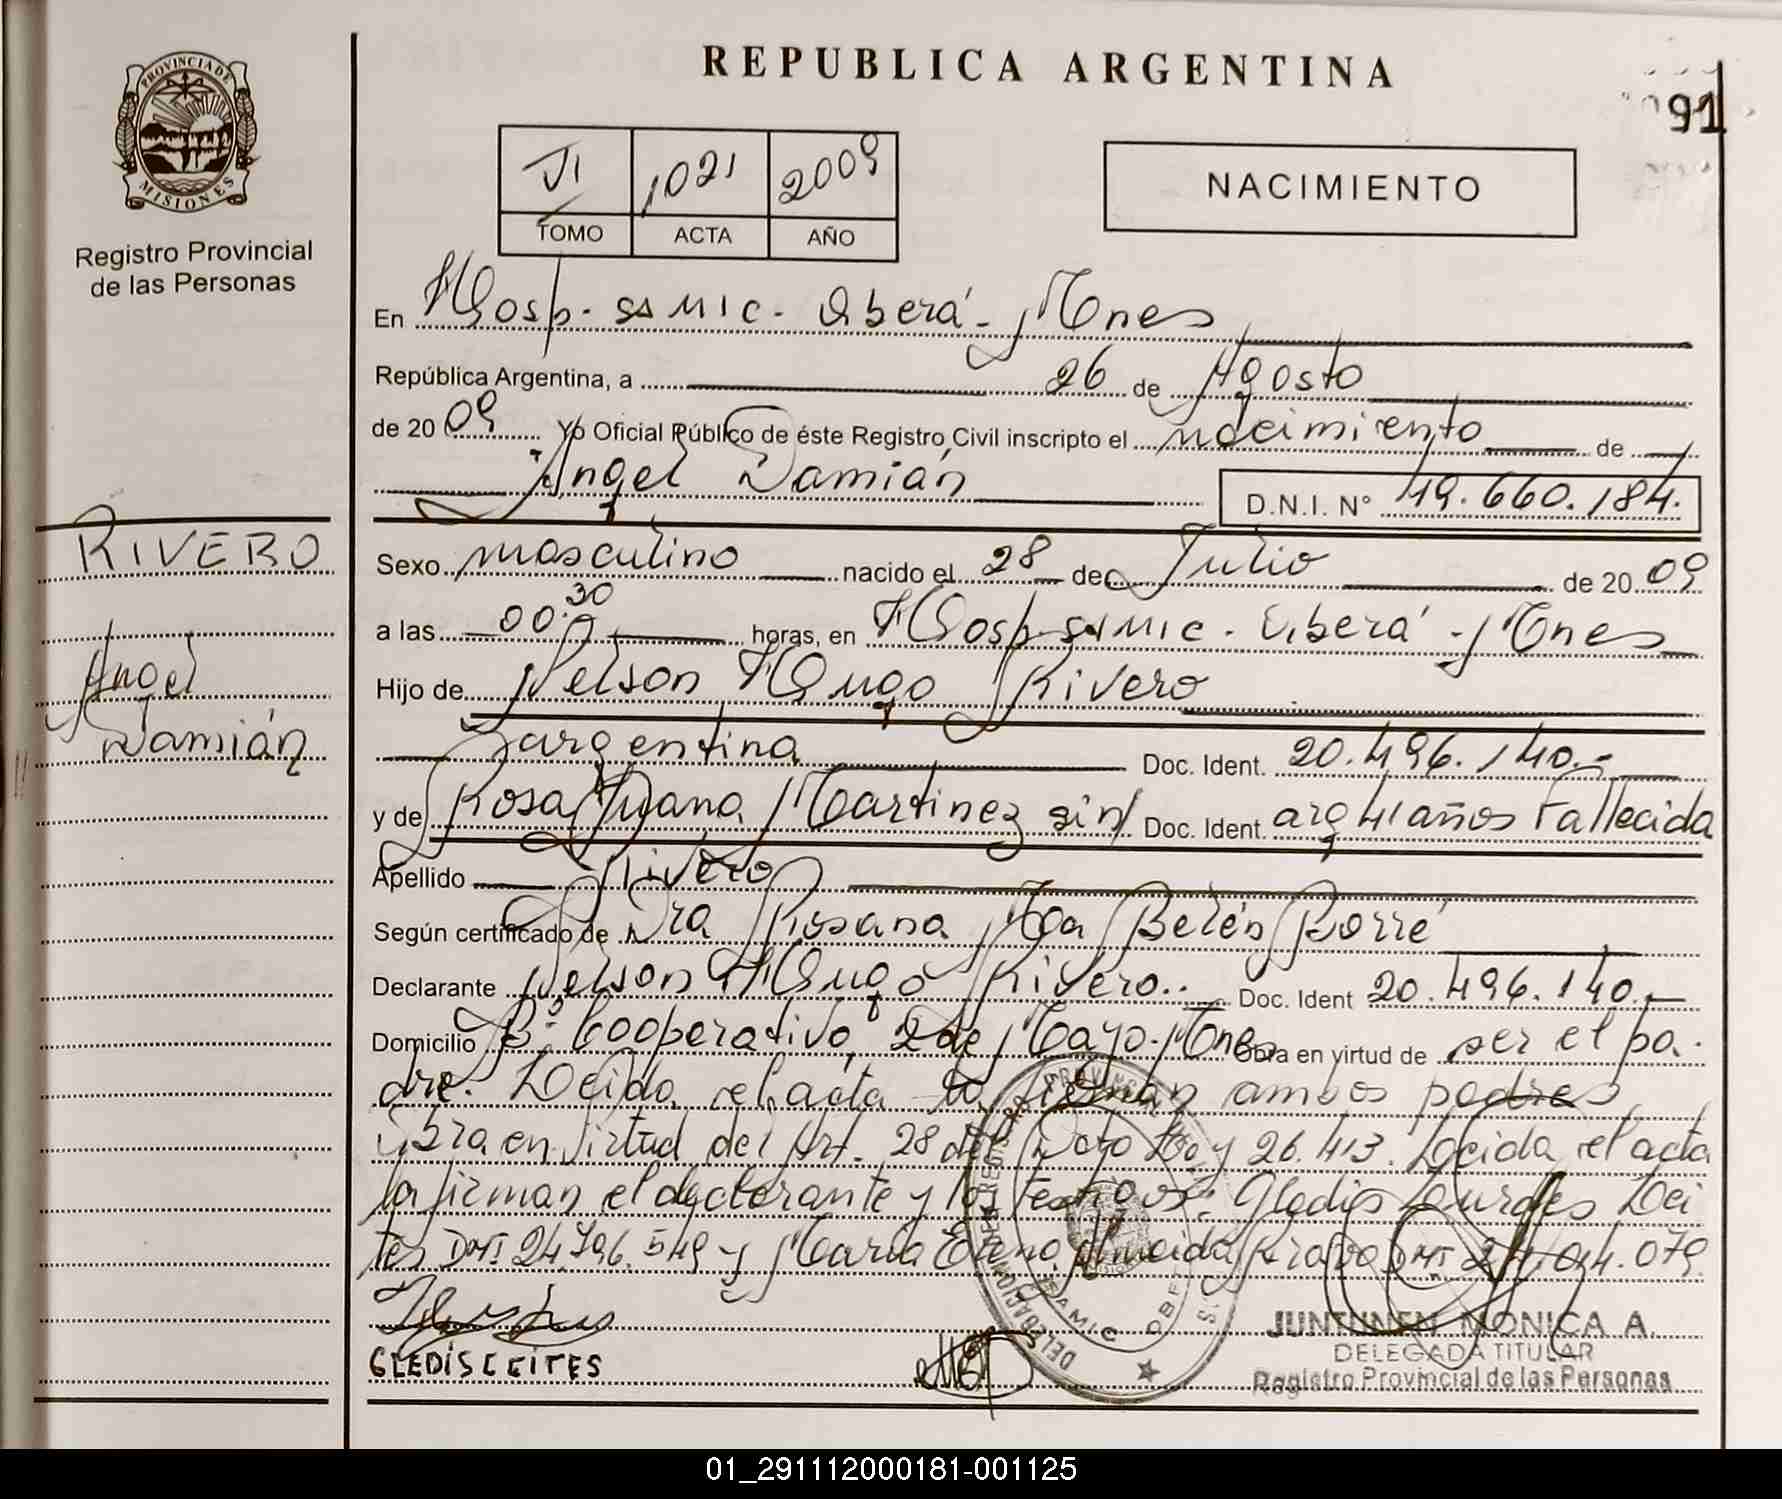 PROVINCIA DE
MISIONES
Registro Provincial
de las Personas
REPUBLICA ARGENTINA
91
VI 1021 2009
TOMO ACTA AÑO
NACIMIENTO
En Hosp. SAMIC. Oberá - Mnes
República Argentina, a 26 de Agosto
de 2009 Yo Oficial Público de éste Registro Civil inscripto el nacimiento de
Angel Damián D.N.I. Nº 49.660.184.
RIVERO
Sexo masculino nacido el 28 de Julio de 2009
a las 00:30 horas, en Hosp. SAMIC. Oberá - Mnes
Angel
Hijo de Nelson Hugo Rivero
Damián
argentina Doc. Ident. 20.496.140.-
y de Rosa Juana Martinez sin/ Doc. Ident. arg 41 años Fallecida
Apellido Rivero
Según certificado de Dra Rosana Ma Belén Borré
Declarante Nelson Hugo Rivero.. Doc. Ident 20.496.140.-
Domicilio Bº Cooperativo, 2 de Mayo. Mnes Obra en virtud de ser el pa-
dre. Leída el acta la firman ambos padres
Obra en virtud del Art. 28 del Dcto Ley 26.413. Leída el acta
la firman el declarante y los testigos: Gledis Lurdes Lei
tes DNI 24.796.549 y María Elena Almeida DNI
GLEDIS LEITES
PROVINCIAL
DELEGACION
SAMIC OBERA
JUNTUNEN MONICA A.
DELEGADA TITULAR
Registro Provincial de las Personas
01_291112000181-001125